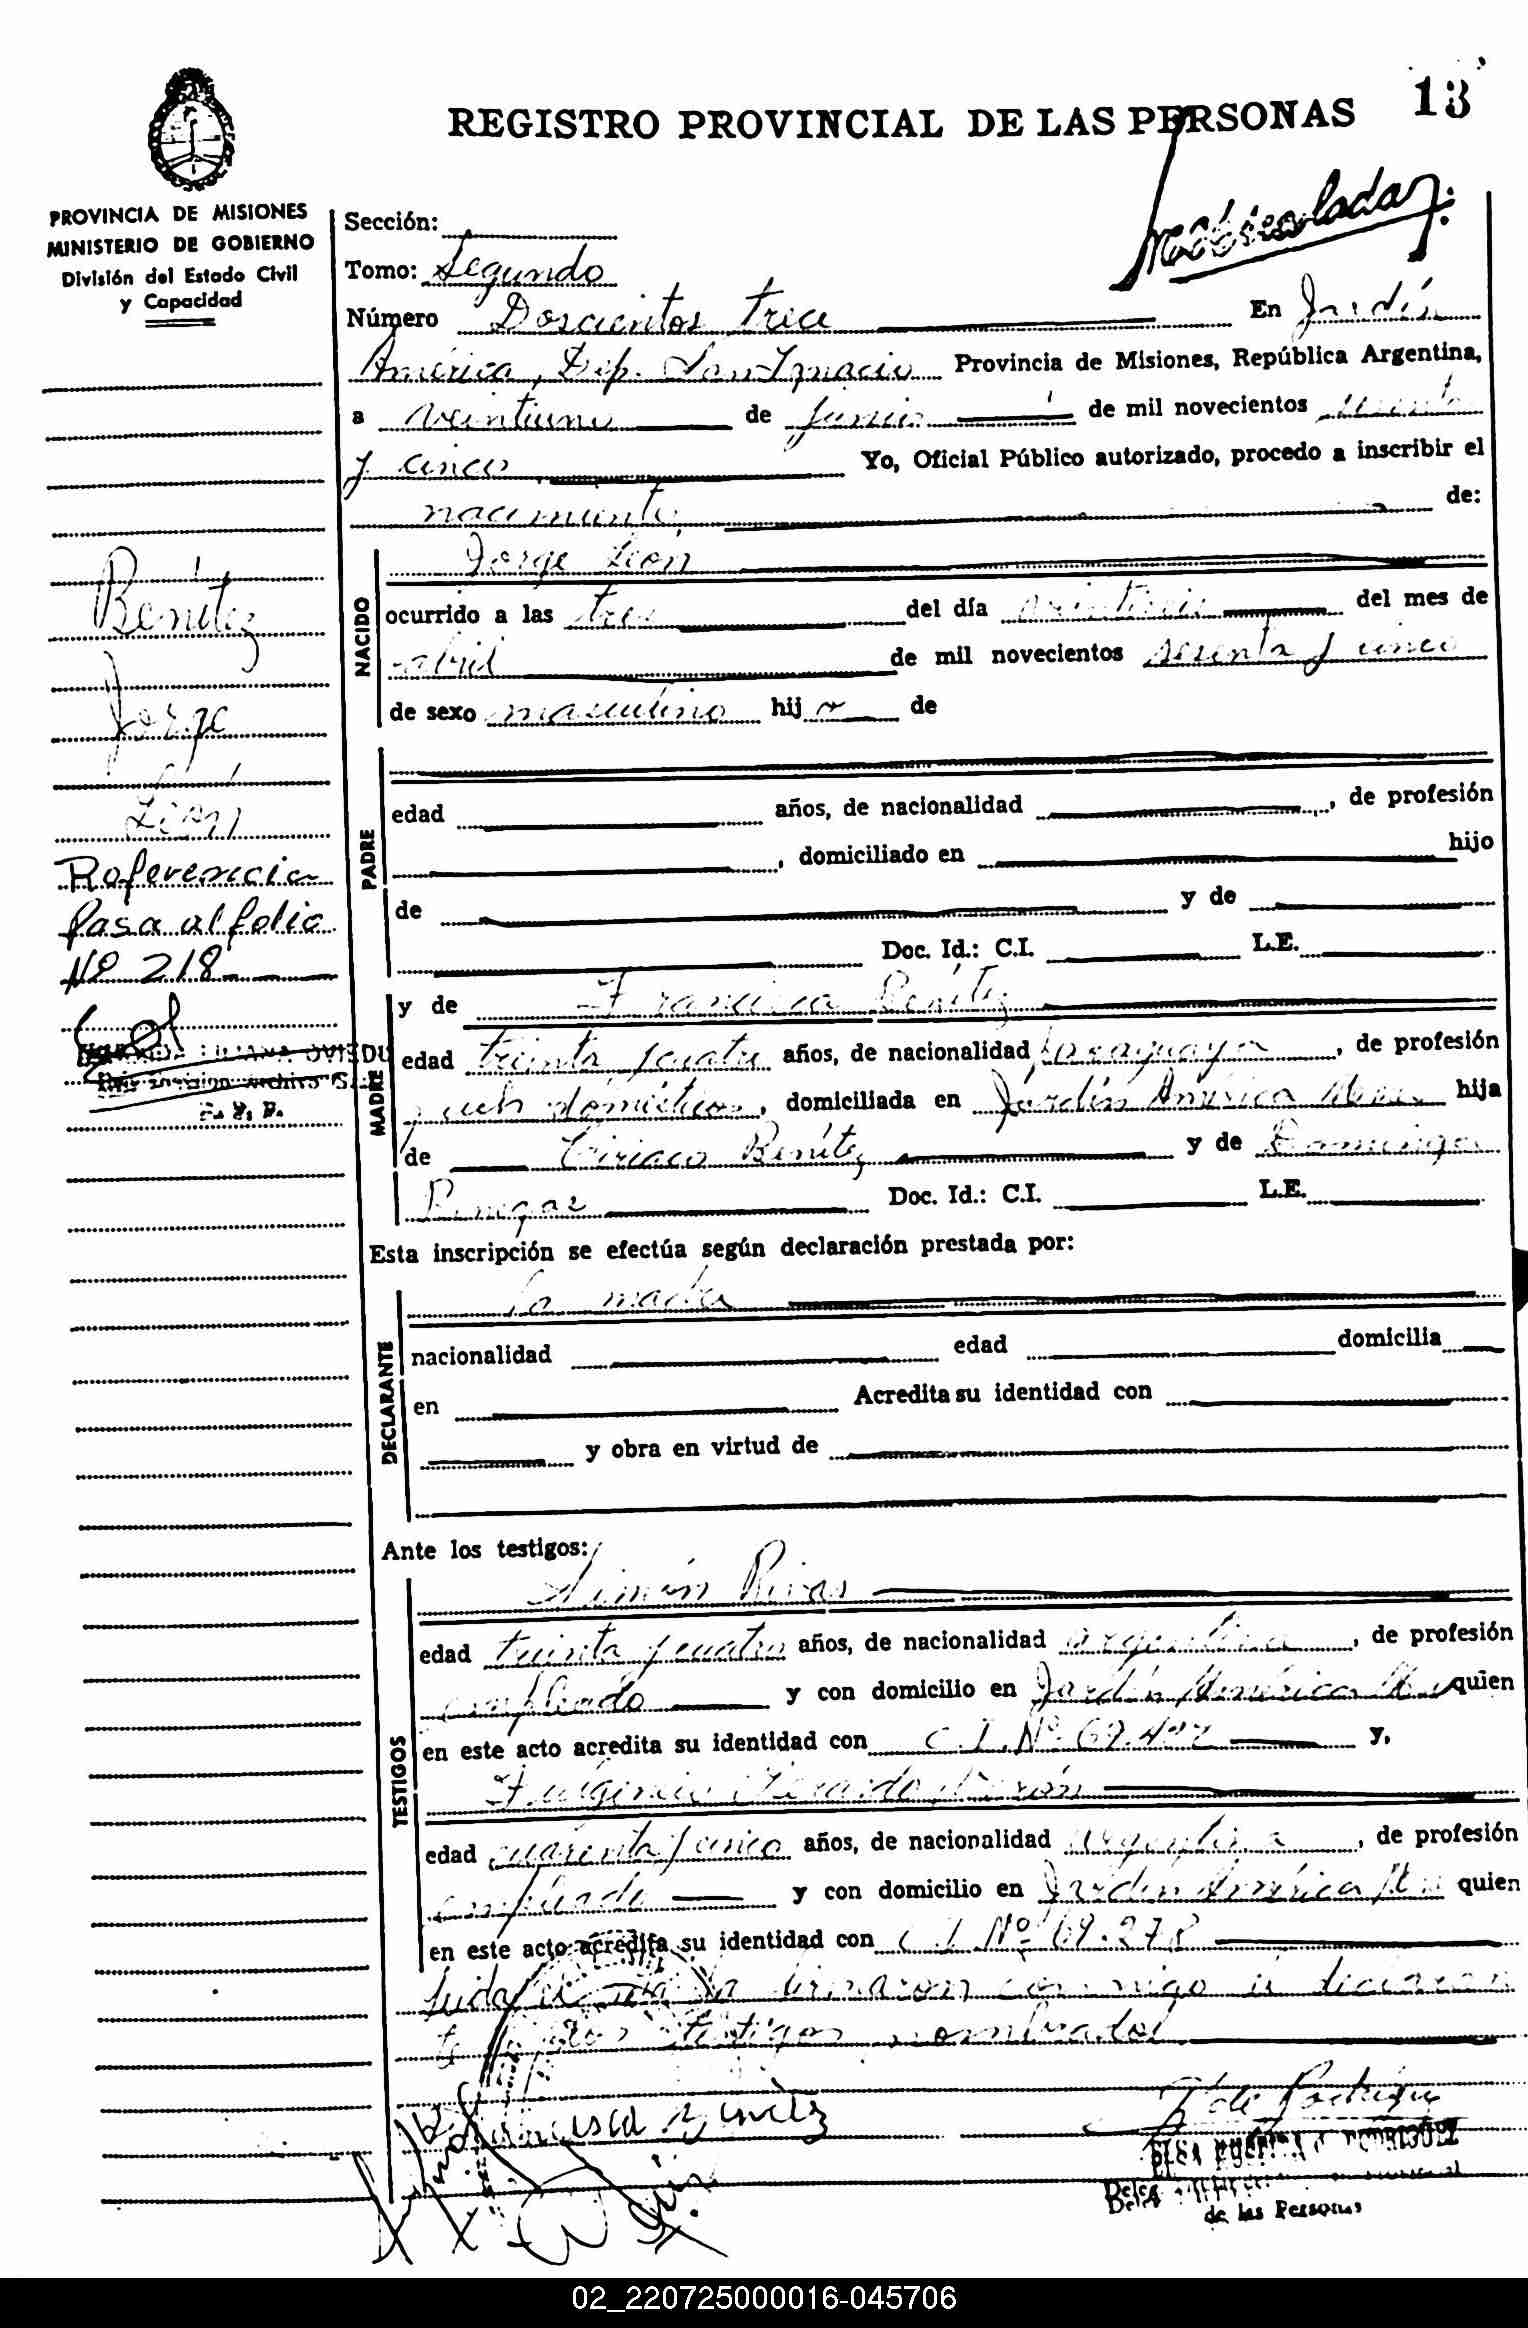 13
REGISTRO PROVINCIAL DE LAS PERSONAS
Matriculada
PROVINCIA DE MISIONES
MINISTERIO DE GOBIERNO
División del Estado Civil
y Capacidad
Sección:
Tomo: Segundo
Número Doscientos trece En Jardín
América, Dep. San Ignacio Provincia de Misiones, República Argentina,
a veintiuno de junio de mil novecientos sesenta
y cinco Yo, Oficial Público autorizado, procedo a inscribir el
nacimiento de:
Benítez
Jorge
León
Referencia
Pasa al folio
Nº 218
LILIANA OVIEDO
NACIDO
Jorge León
ocurrido a las tres del día veintiseis del mes de
abril de mil novecientos sesenta y cinco
de sexo masculino hijo de
PADRE
edad años, de nacionalidad , de profesión
, domiciliado en hijo
de y de
Doc. Id.: C.I. L.E.
MADRE
y de Francisca Benítez
edad treinta y cuatro años, de nacionalidad paraguaya , de profesión
queh. domésticos, domiciliada en Jardín América Mnes hija
de Ciriaco Benítez y de Dominga
Doc. Id.: C.I. L.E.
Esta inscripción se efectúa según declaración prestada por:
DECLARANTE
la madre
nacionalidad edad domicilia
en Acredita su identidad con
y obra en virtud de
Ante los testigos:
TESTIGOS
Simón Rivas
edad treinta y cuatro años, de nacionalidad argentina , de profesión
empleado y con domicilio en Jardín América quien
en este acto acredita su identidad con C.I. Nº 69.427 y,
Fulgencio
edad cuarenta y cinco años, de nacionalidad argentina , de profesión
empleado y con domicilio en Jardín América quien
en este acto acredita su identidad con C.I. Nº 69.278
Leida el acta la firmaron conmigo el declaran
te y los testigos nombrados
Francisca Benitez
de Rodriguez
de las Personas
02_220725000016-045706